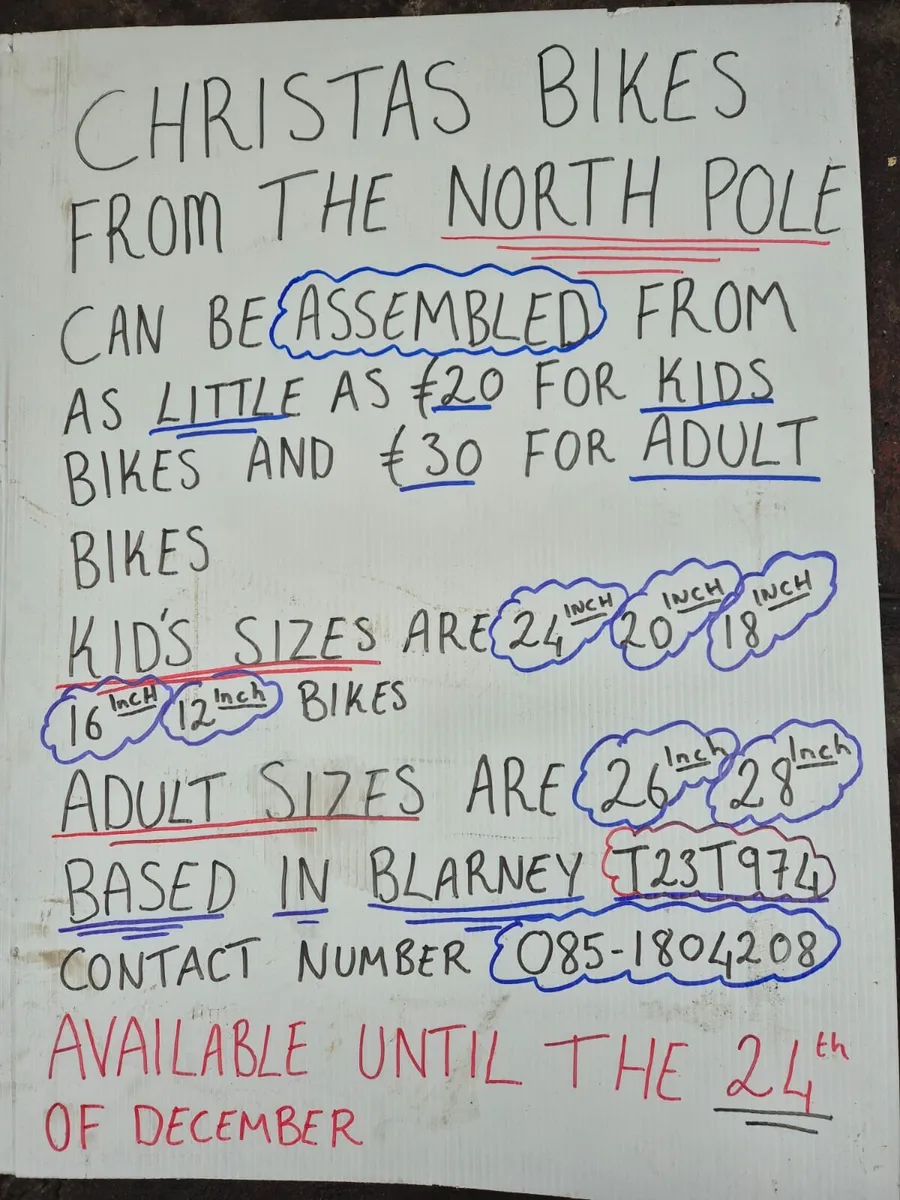 CHRISTAS BIKES
FROM THE NORTH POLE
CAN BE ASSEMBLED FROM
AS LITTLE AS €20 FOR KIDS
BIKES AND €30 FOR ADULT
BIKES
KID'S SIZES ARE 24 INCH 20 INCH 18 INCH
16 InCH 12 Inch BIKES
ADULT SIZES ARE 26 Inch 28 Inch
BASED IN BLARNEY T23T974
CONTACT NUMBER 085-1804208
AVAILABLE UNTIL THE 24th
OF DECEMBER